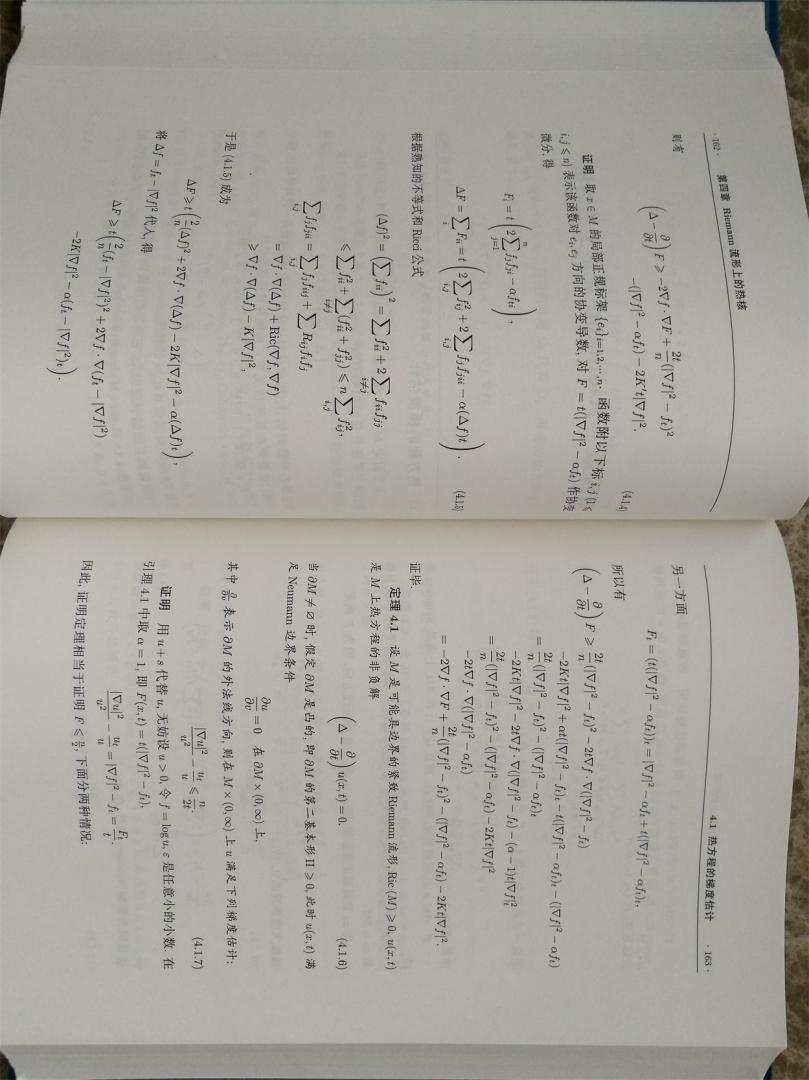 · 162 · 第四章 Riemann 流形上的热核
则有
(Δ − ∂/∂t) F ⩾ −2∇f · ∇F + 2t/n (|∇f|² − fₜ)²
−(|∇f|² − αfₜ) − 2K't|∇f|². (4.1.4)
证明 取 x ∈ M 的局部正规标架 {eᵢ}ᵢ₌₁,₂,…,ₙ. 函数附以下标 i, j (1 ⩽
i, j ⩽ n) 表示该函数对 eᵢ, eⱼ 方向的协变导数, 对 F = t(|∇f|² − αfₜ) 作协变
微分, 得
Fᵢ = t (2 ∑ⱼ₌₁ⁿ fⱼfⱼᵢ − αfₜᵢ),
ΔF = ∑ᵢ Fᵢᵢ = t (2 ∑ᵢ,ⱼ fᵢⱼ² + 2 ∑ᵢ,ⱼ fⱼfⱼᵢᵢ − α(Δf)ₜ). (4.1.5)
根据熟知的不等式和 Ricci 公式
(Δf)² = (∑ fᵢᵢ)² = ∑ fᵢᵢ² + 2 ∑_{i≠j} fᵢᵢfⱼⱼ
⩽ ∑ fᵢᵢ² + ∑_{i≠j} (fᵢᵢ² + fⱼⱼ²) ⩽ n ∑ᵢ,ⱼ fᵢⱼ²,
∑ᵢ,ⱼ fⱼfⱼᵢᵢ = ∑ᵢ,ⱼ fⱼfᵢᵢⱼ + ∑ Rᵢⱼfᵢfⱼ
= ∇f · ∇(Δf) + Ric(∇f, ∇f)
⩾ ∇f · ∇(Δf) − K|∇f|²,
于是 (4.1.5) 成为
ΔF ⩾ t (2/n (Δf)² + 2∇f · ∇(Δf) − 2K|∇f|² − α(Δf)ₜ),
将 Δf = fₜ − |∇f|² 代入, 得
ΔF ⩾ t (2/n (fₜ − |∇f|²)² + 2∇f · ∇(fₜ − |∇f|²)
−2K|∇f|² − α(fₜ − |∇f|²)ₜ).
4.1 热方程的梯度估计 · 163 ·
另一方面
Fₜ = (t(|∇f|² − αfₜ))ₜ = |∇f|² − αfₜ + t(|∇f|² − αfₜ)ₜ,
所以有
(Δ − ∂/∂t) F ⩾ 2t/n (|∇f|² − fₜ)² − 2t∇f · ∇(|∇f|² − fₜ)
−2Kt|∇f|² + αt(|∇f|² − fₜ)ₜ − t(|∇f|² − αfₜ)ₜ − (|∇f|² − αfₜ)
= 2t/n (|∇f|² − fₜ)² − (|∇f|² − αfₜ)ₜ
−2Kt|∇f|² − 2t∇f · ∇(|∇f|² − fₜ) − (α − 1)t|∇f|ₜ²
= 2t/n (|∇f|² − fₜ)² − (|∇f|² − αfₜ) − 2Kt|∇f|²
−2t∇f · ∇(|∇f|² − αfₜ)
= −2∇f · ∇F + 2t/n (|∇f|² − fₜ)² − (|∇f|² − αfₜ) − 2Kt|∇f|².
证毕.
定理 4.1 设 M 是可能具边界的紧致 Riemann 流形, Ric (M) ⩾ 0, u(x, t)
是 M 上热方程的非负解
(Δ − ∂/∂t) u(x, t) = 0. (4.1.6)
当 ∂M ≠ ∅ 时, 假定 ∂M 是凸的, 即 ∂M 的第二基本形 II ⩾ 0, 此时 u(x, t) 满
足 Neumann 边界条件
∂u/∂ν = 0 在 ∂M × (0, ∞) 上,
其中 ∂/∂ν 表示 ∂M 的外法线方向, 则在 M × (0, ∞) 上 u 满足下列梯度估计:
|∇u|²/u² − uₜ/u ⩽ n/2t. (4.1.7)
证明 用 u + ε 代替 u, 无妨设 u > 0, 令 f = log u, ε 是任意小的小数. 在
引理 4.1 中取 α = 1, 即 F(x, t) = t(|∇f|² − fₜ),
|∇u|²/u² − uₜ/u = |∇f|² − fₜ = F/t.
因此, 证明定理相当于证明 F ⩽ n/2, 下面分两种情况: